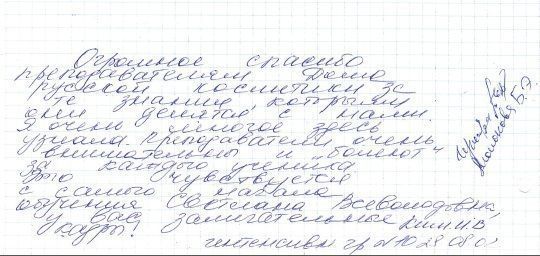 Огромное спасибо
преподавателям Дома
русской косметики за
те знания, которыми
они делятся с нами.
Я очень многое здесь
узнала. преподаватели очень
внимательны и "болеют"
за каждого ученика
Это чувствуется
с самого начала
обучения Светлана Всеволодовна,
у вас замечательные
кадры!
интенсивн гр N 10 28 08